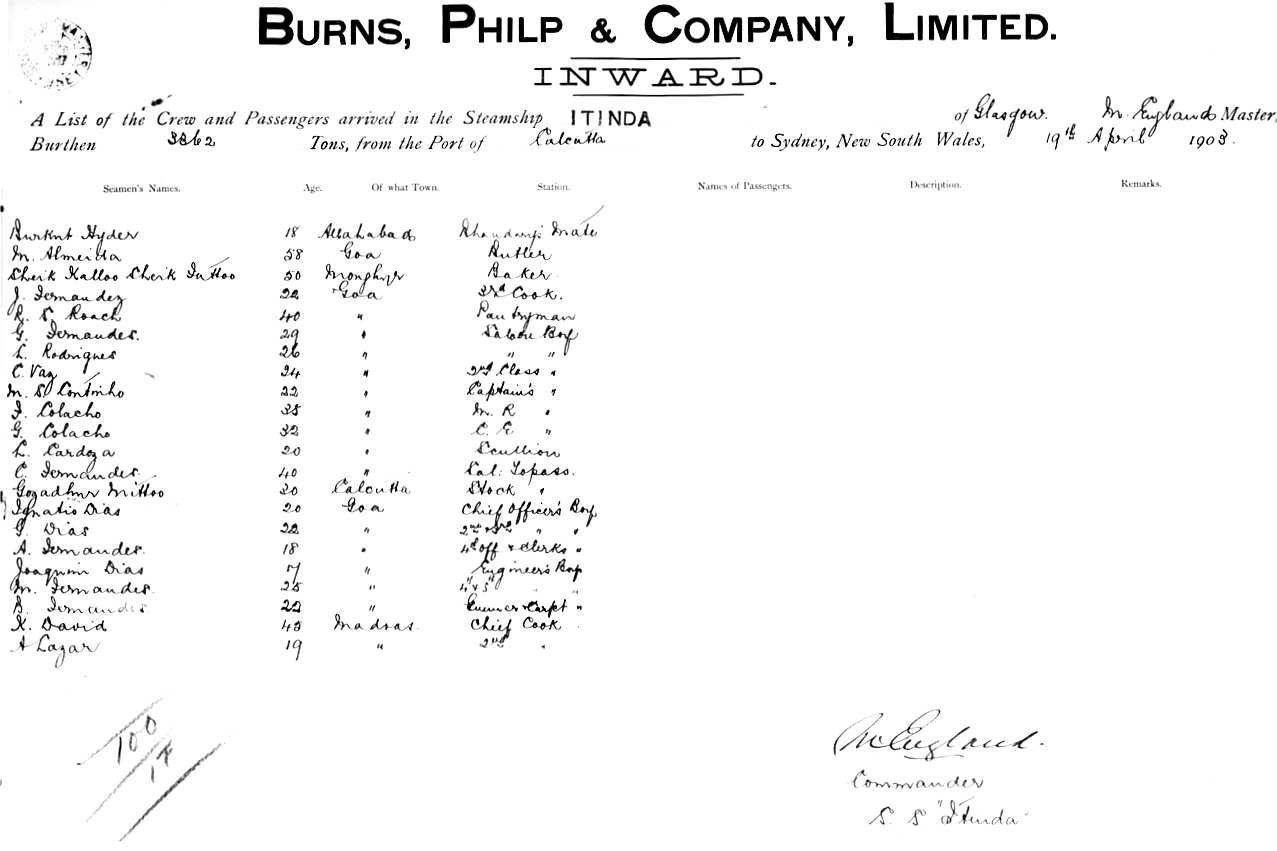 BURNS, PHILP & COMPANY, LIMITED.
INWARD.
A List of the Crew and Passengers arrived in the Steamship ITINDA of Glasgow. M. England Master,
Burthen 3862 Tons, from the Port of Calcutta to Sydney, New South Wales, 19th April 1903.
Seamen's Names. Age. Of what Town. Station. Names of Passengers. Description. Remarks.
Burknt Hyder 18 Allahabad Bhandary's Mate
M. Almeida 58 Goa Butler
Sheik Kalloo Sheik Tuttoo 50 Monghyr Baker
J. Fernandez 22 Goa 3rd Cook.
R. S. Roach 40 " Pantryman
G. Fernandes. 29 " Saloon Boy
L. Rodrigues 26 " " "
C. Vaz 24 " 2nd Class "
M. S. Continho 22 " Captain's "
F. Colacho 35 " M. R "
G. Colacho 32 " C. E "
L. Cardoza 20 " Scullion
C. Fernandes. 40 " Sal: Topass.
Gogadhur Mittoo 30 Calcutta Stock "
Ignatio Dias 20 Goa Chief Officer's Boy
G. Dias 22 " 2nd & 3rd " "
A. Fernandes. 18 " 4th Off & Clerks "
Joaquim Dias 17 " Engineer's Boy
M. Fernandes. 25 " 4" & 5" " "
B. Fernandes 22 " Gunner & Carpt "
K. David 45 Madras. Chief Cook
A Lazar 19 " 2nd "
100
17
M England.
Commander
S. S "Itinda"